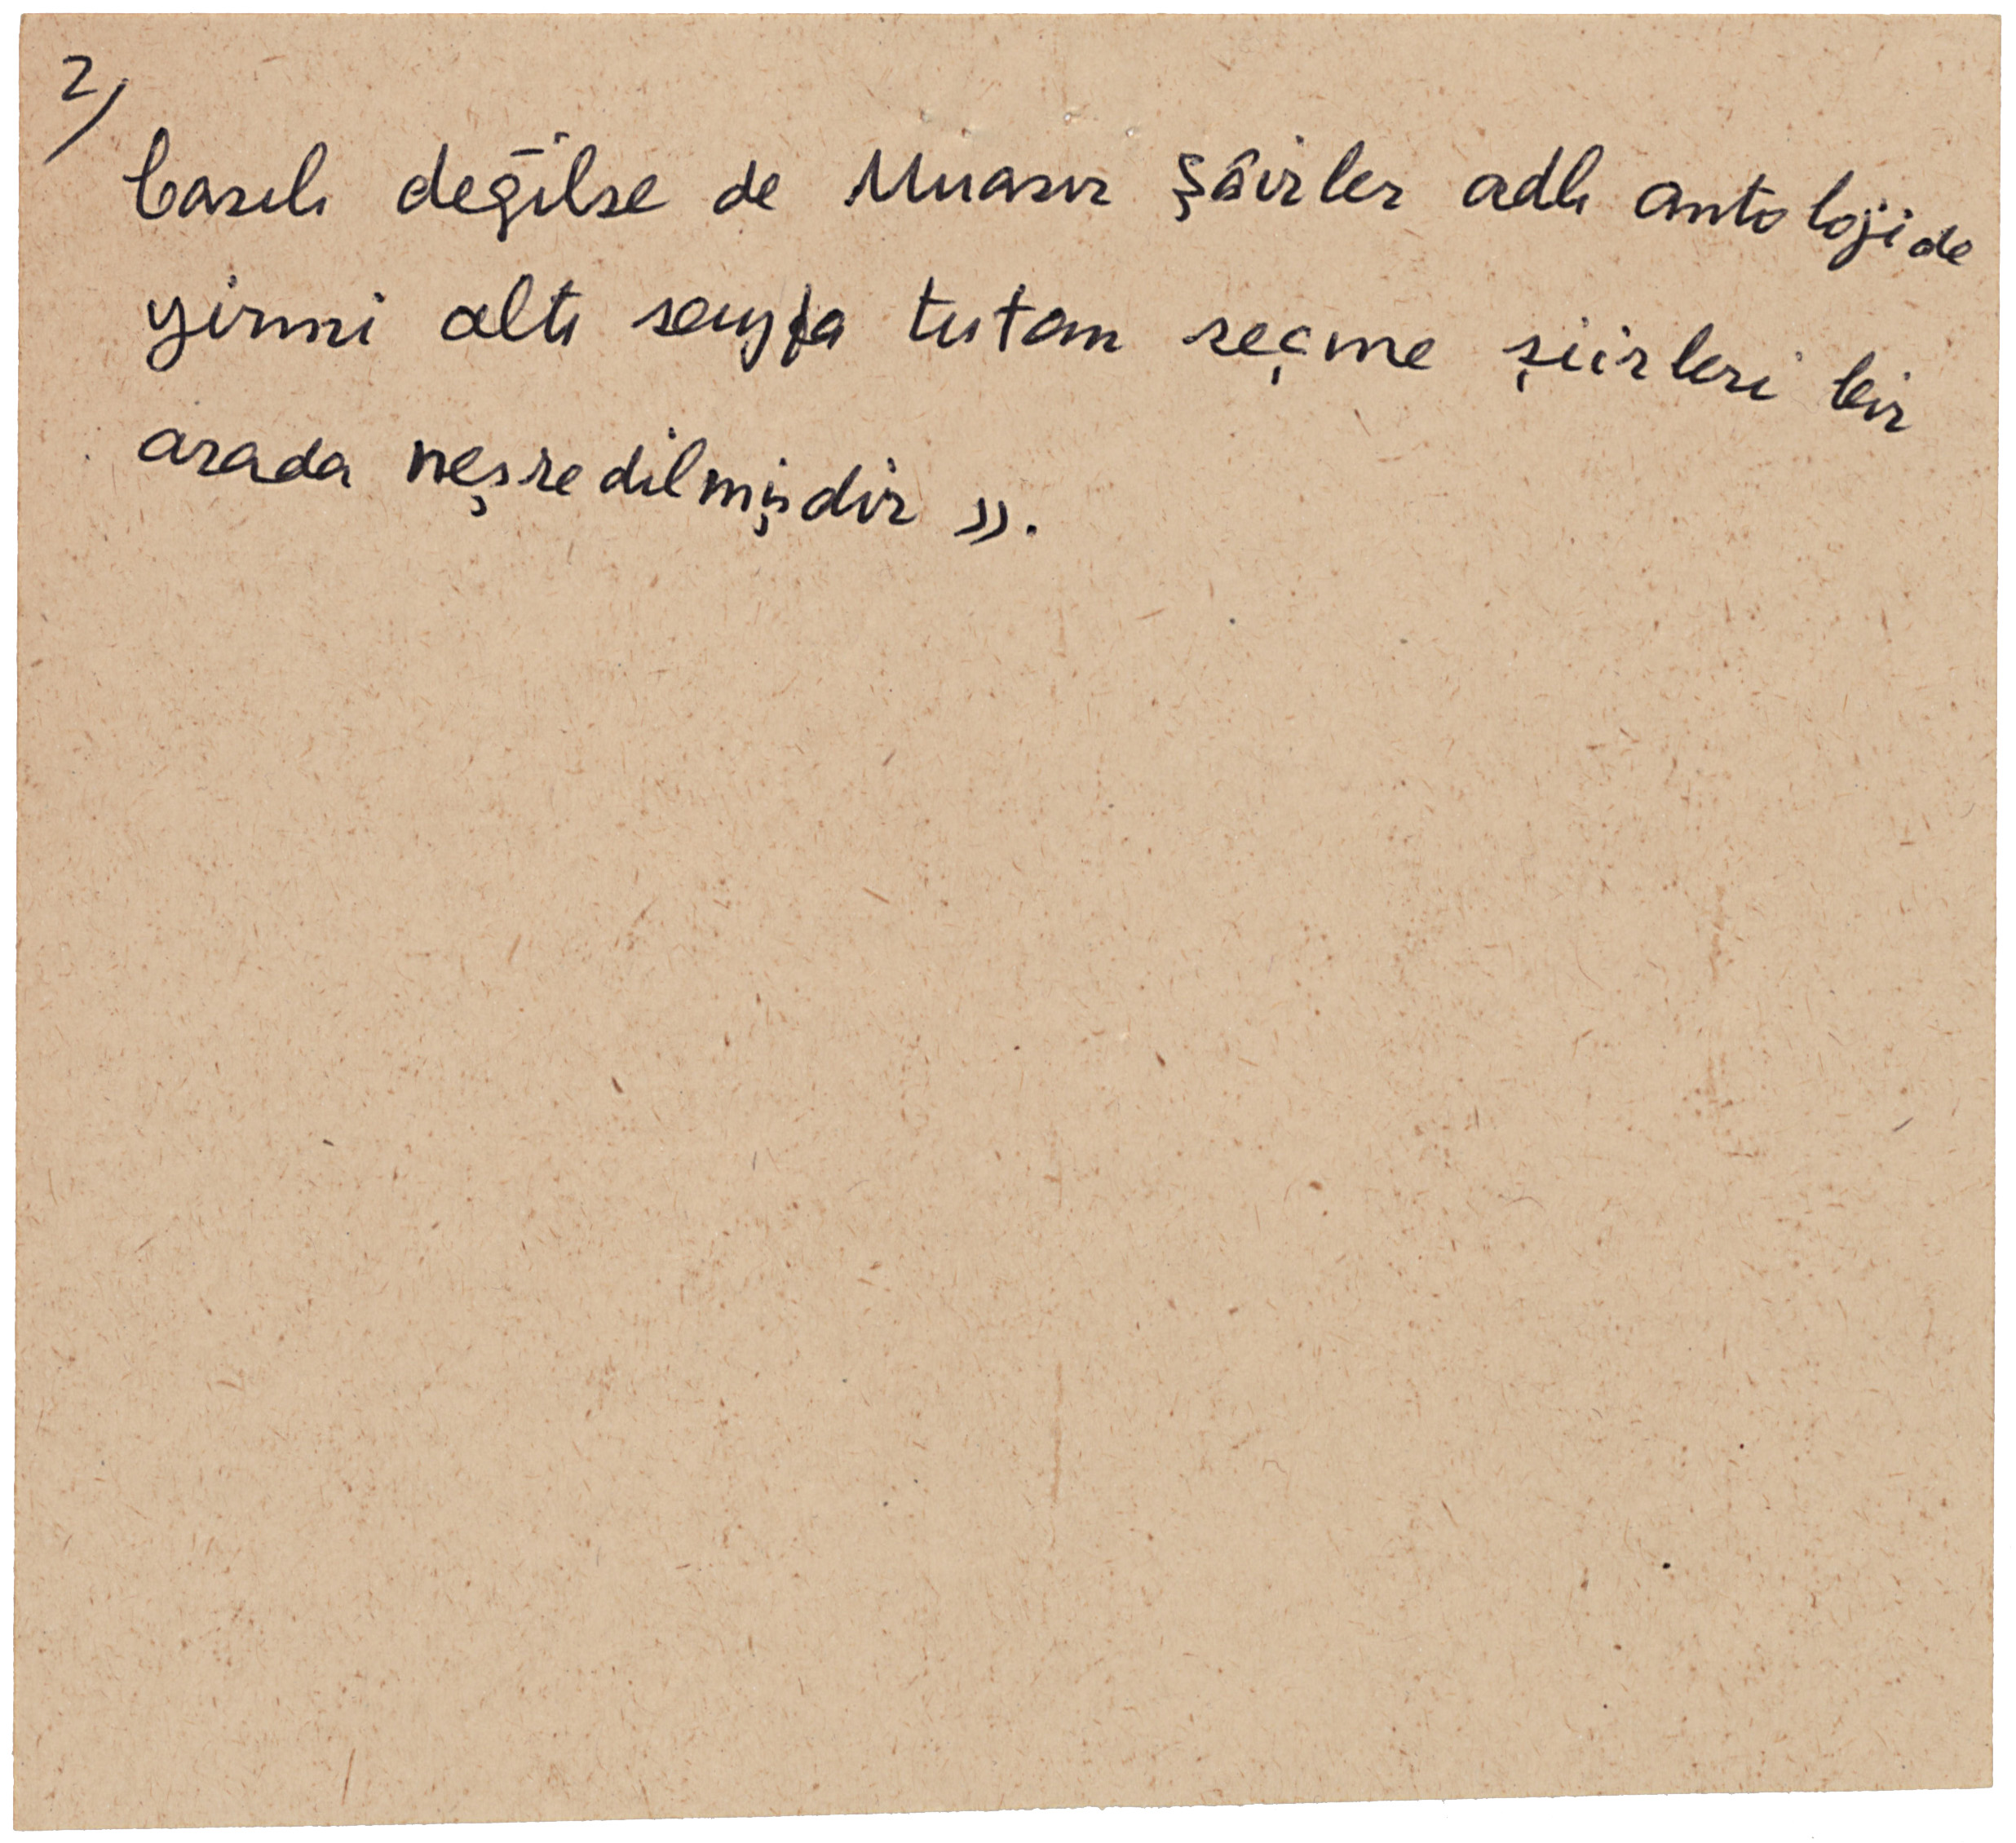 2)
basılı değilse de Muasır Şâirler adlı antolojide
yirmi altı sayfa tutan seçme şiirleri bir
arada neşredilmişdir ».